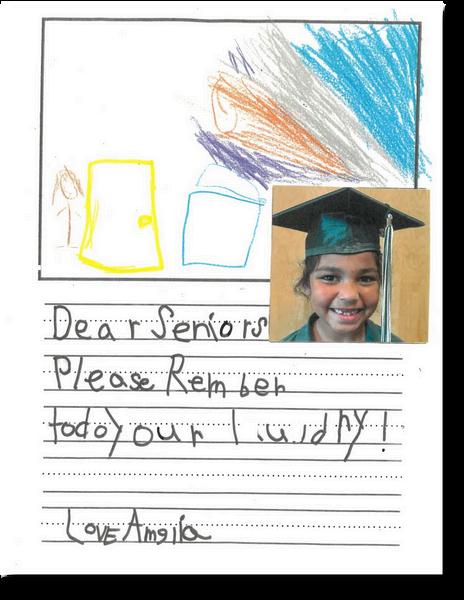 Dear Seniors
Please Rember
todoyour
LOVE Ameila